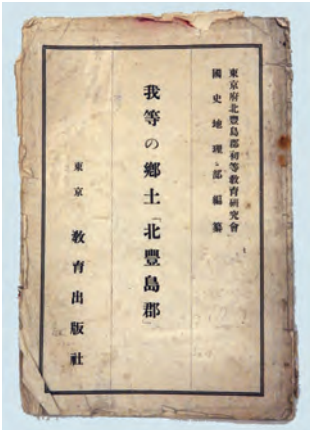 東京府北豐島郡初等敎育硏究會
國史地理部編纂
我等の鄕土「北豐島郡」
東京 敎育出版社